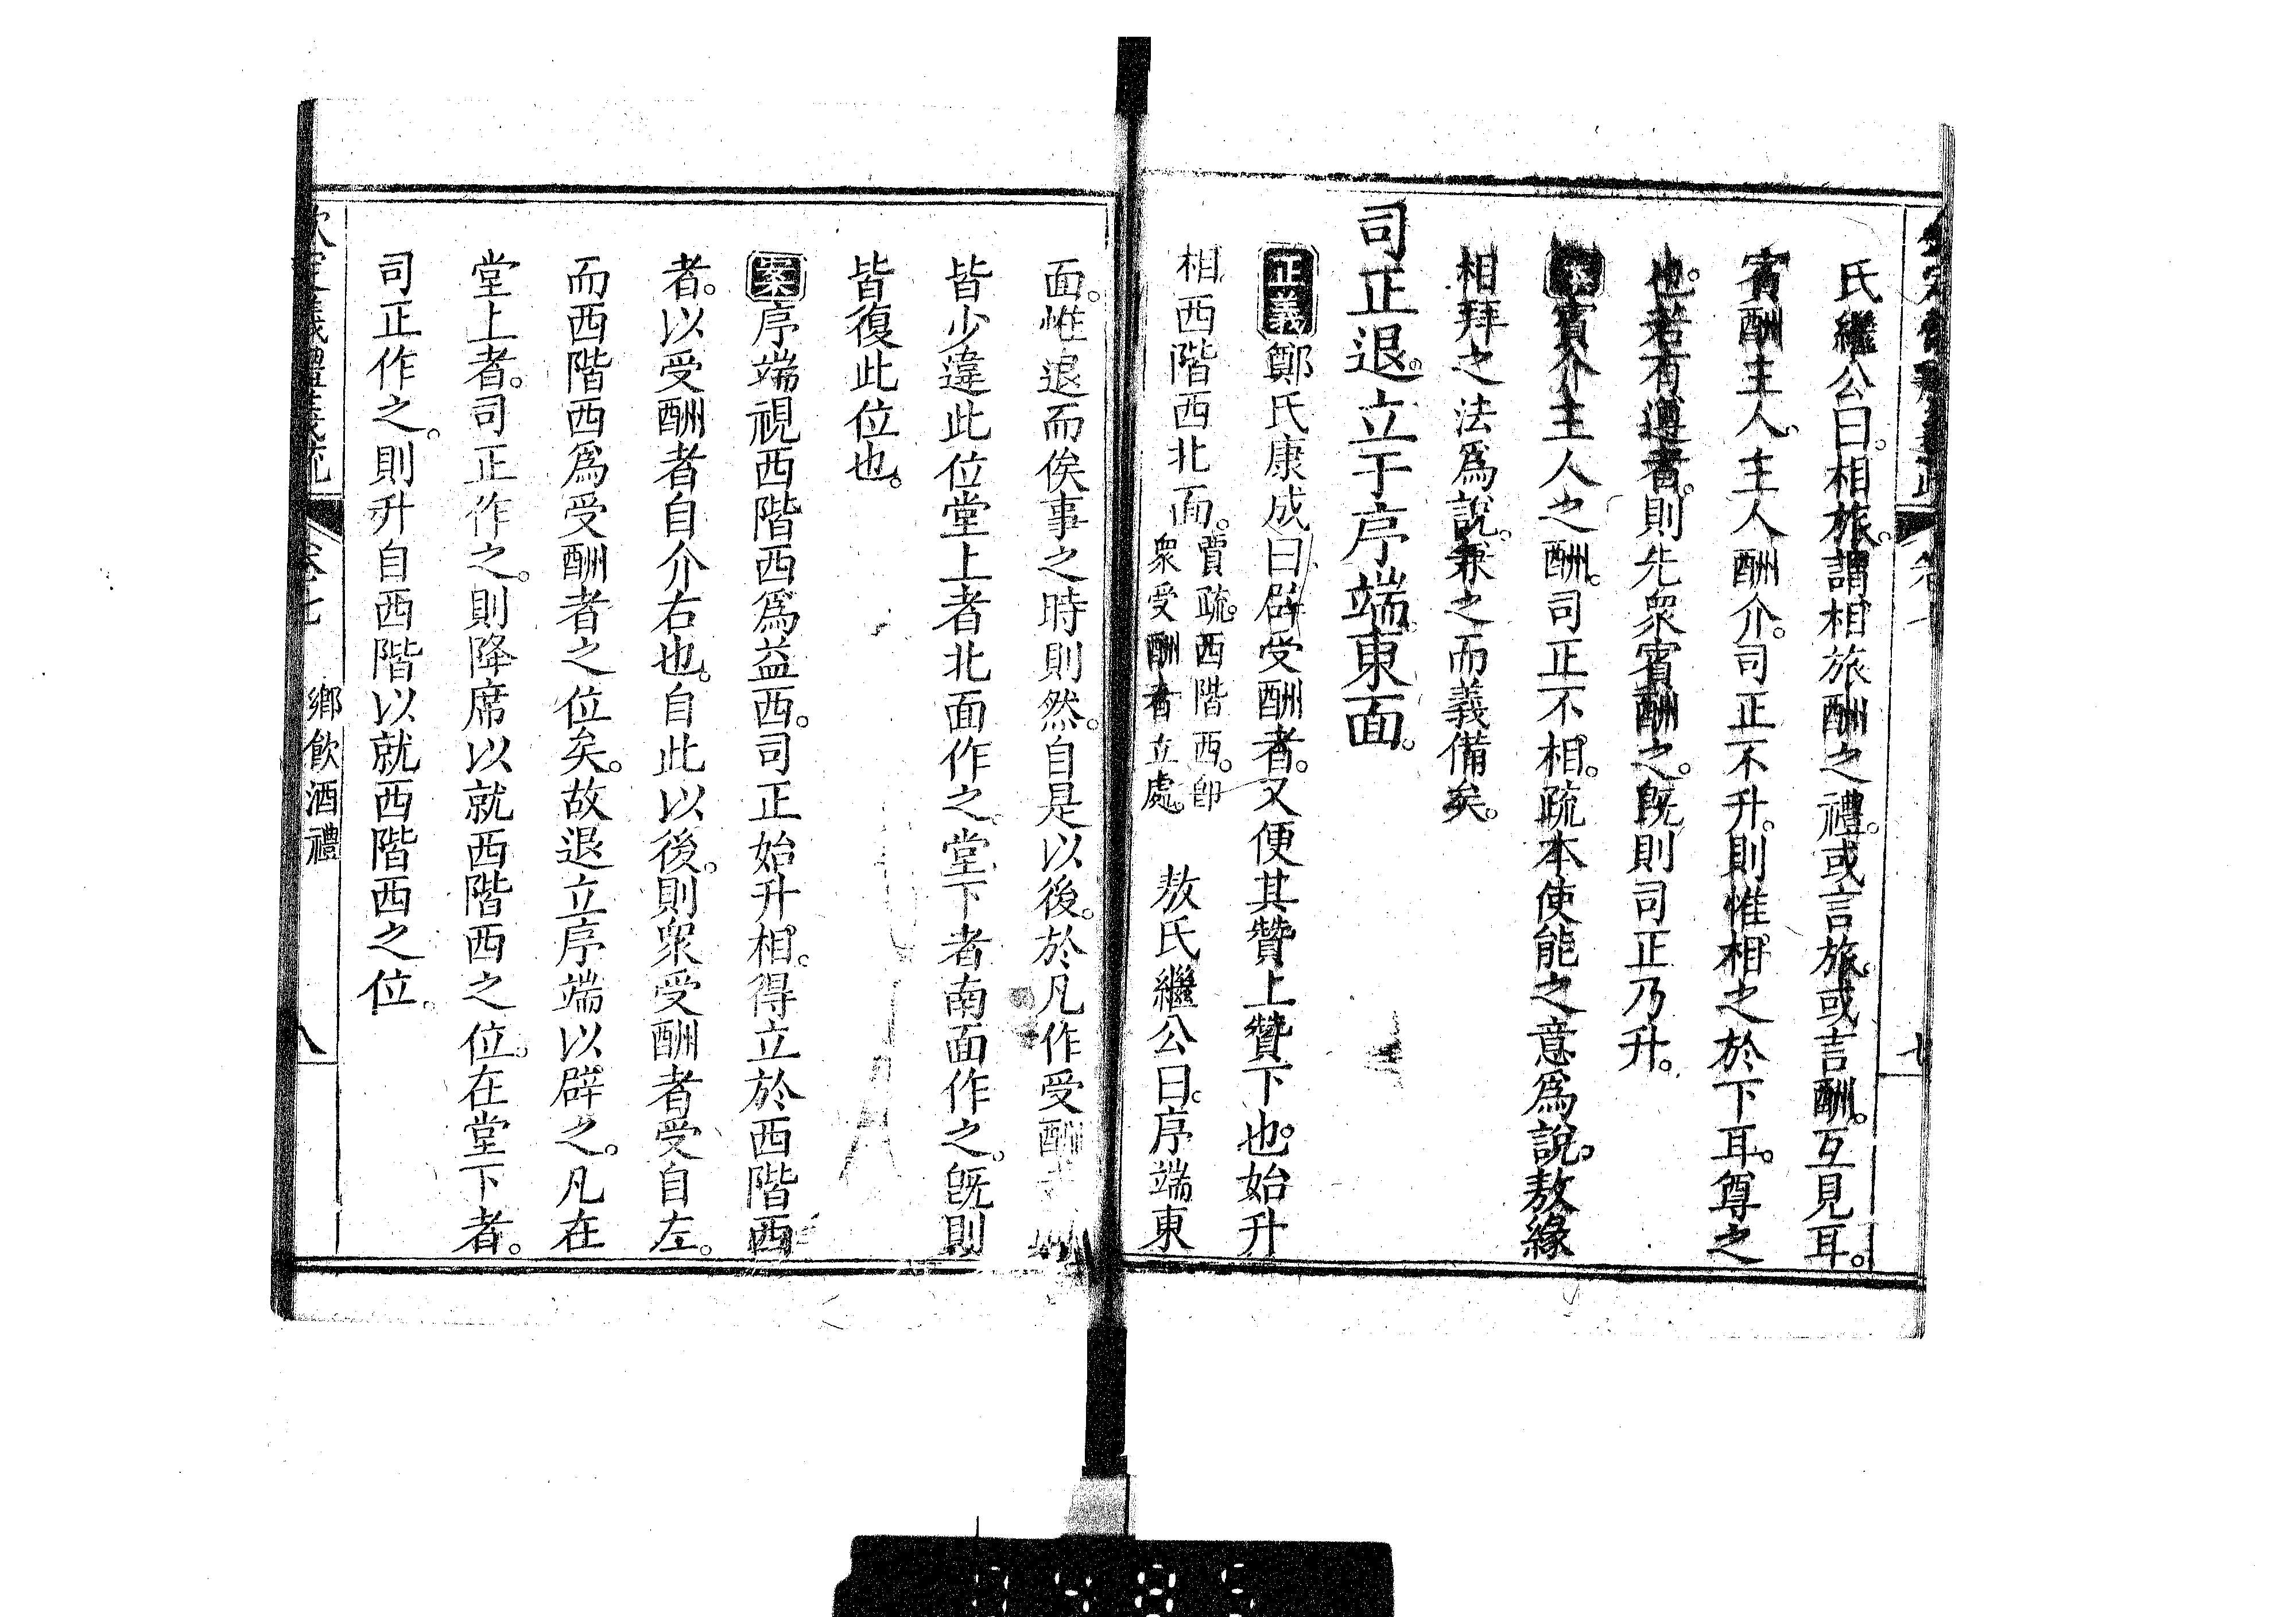 氏繼公曰。相旅。謂相旅酬之禮。或言旅。或言酬。互見耳。
賓酬主人。主人酬介。司正不升。則惟相之於下耳。尊之
也。若有遵者。則先衆賓酬之。旣則司正乃升。
案賓介主人之酬。司正不相。疏本使能之意爲說。敖緣
相拜之法爲說。兼之而義備矣。
司正退。立于序端。東面。
正義鄭氏康成曰辟受酬者。又便其贊上贊下也。始升
相西階西北面。賈疏。西階西。卽
衆受酬者立處。 敖氏繼公曰。序端東
面。惟退而俟事之時則然。自是以後。於凡作受酬
皆少違此位堂上者北面作之。堂下者南面作之。旣則
皆復此位也。
案序端視西階西爲益西。司正始升。相。得立於西階西
者。以受酬者自介右也。自此以後。則衆受酬者受自左。
而西階西爲受酬者之位矣。故退立序端以辟之。凡在
堂上者。司正作之。則降席以就西階西之位。在堂下者。
司正作之。則升自西階以就西階西之位。
欽定儀禮義疏 卷七 鄉飮酒禮 八